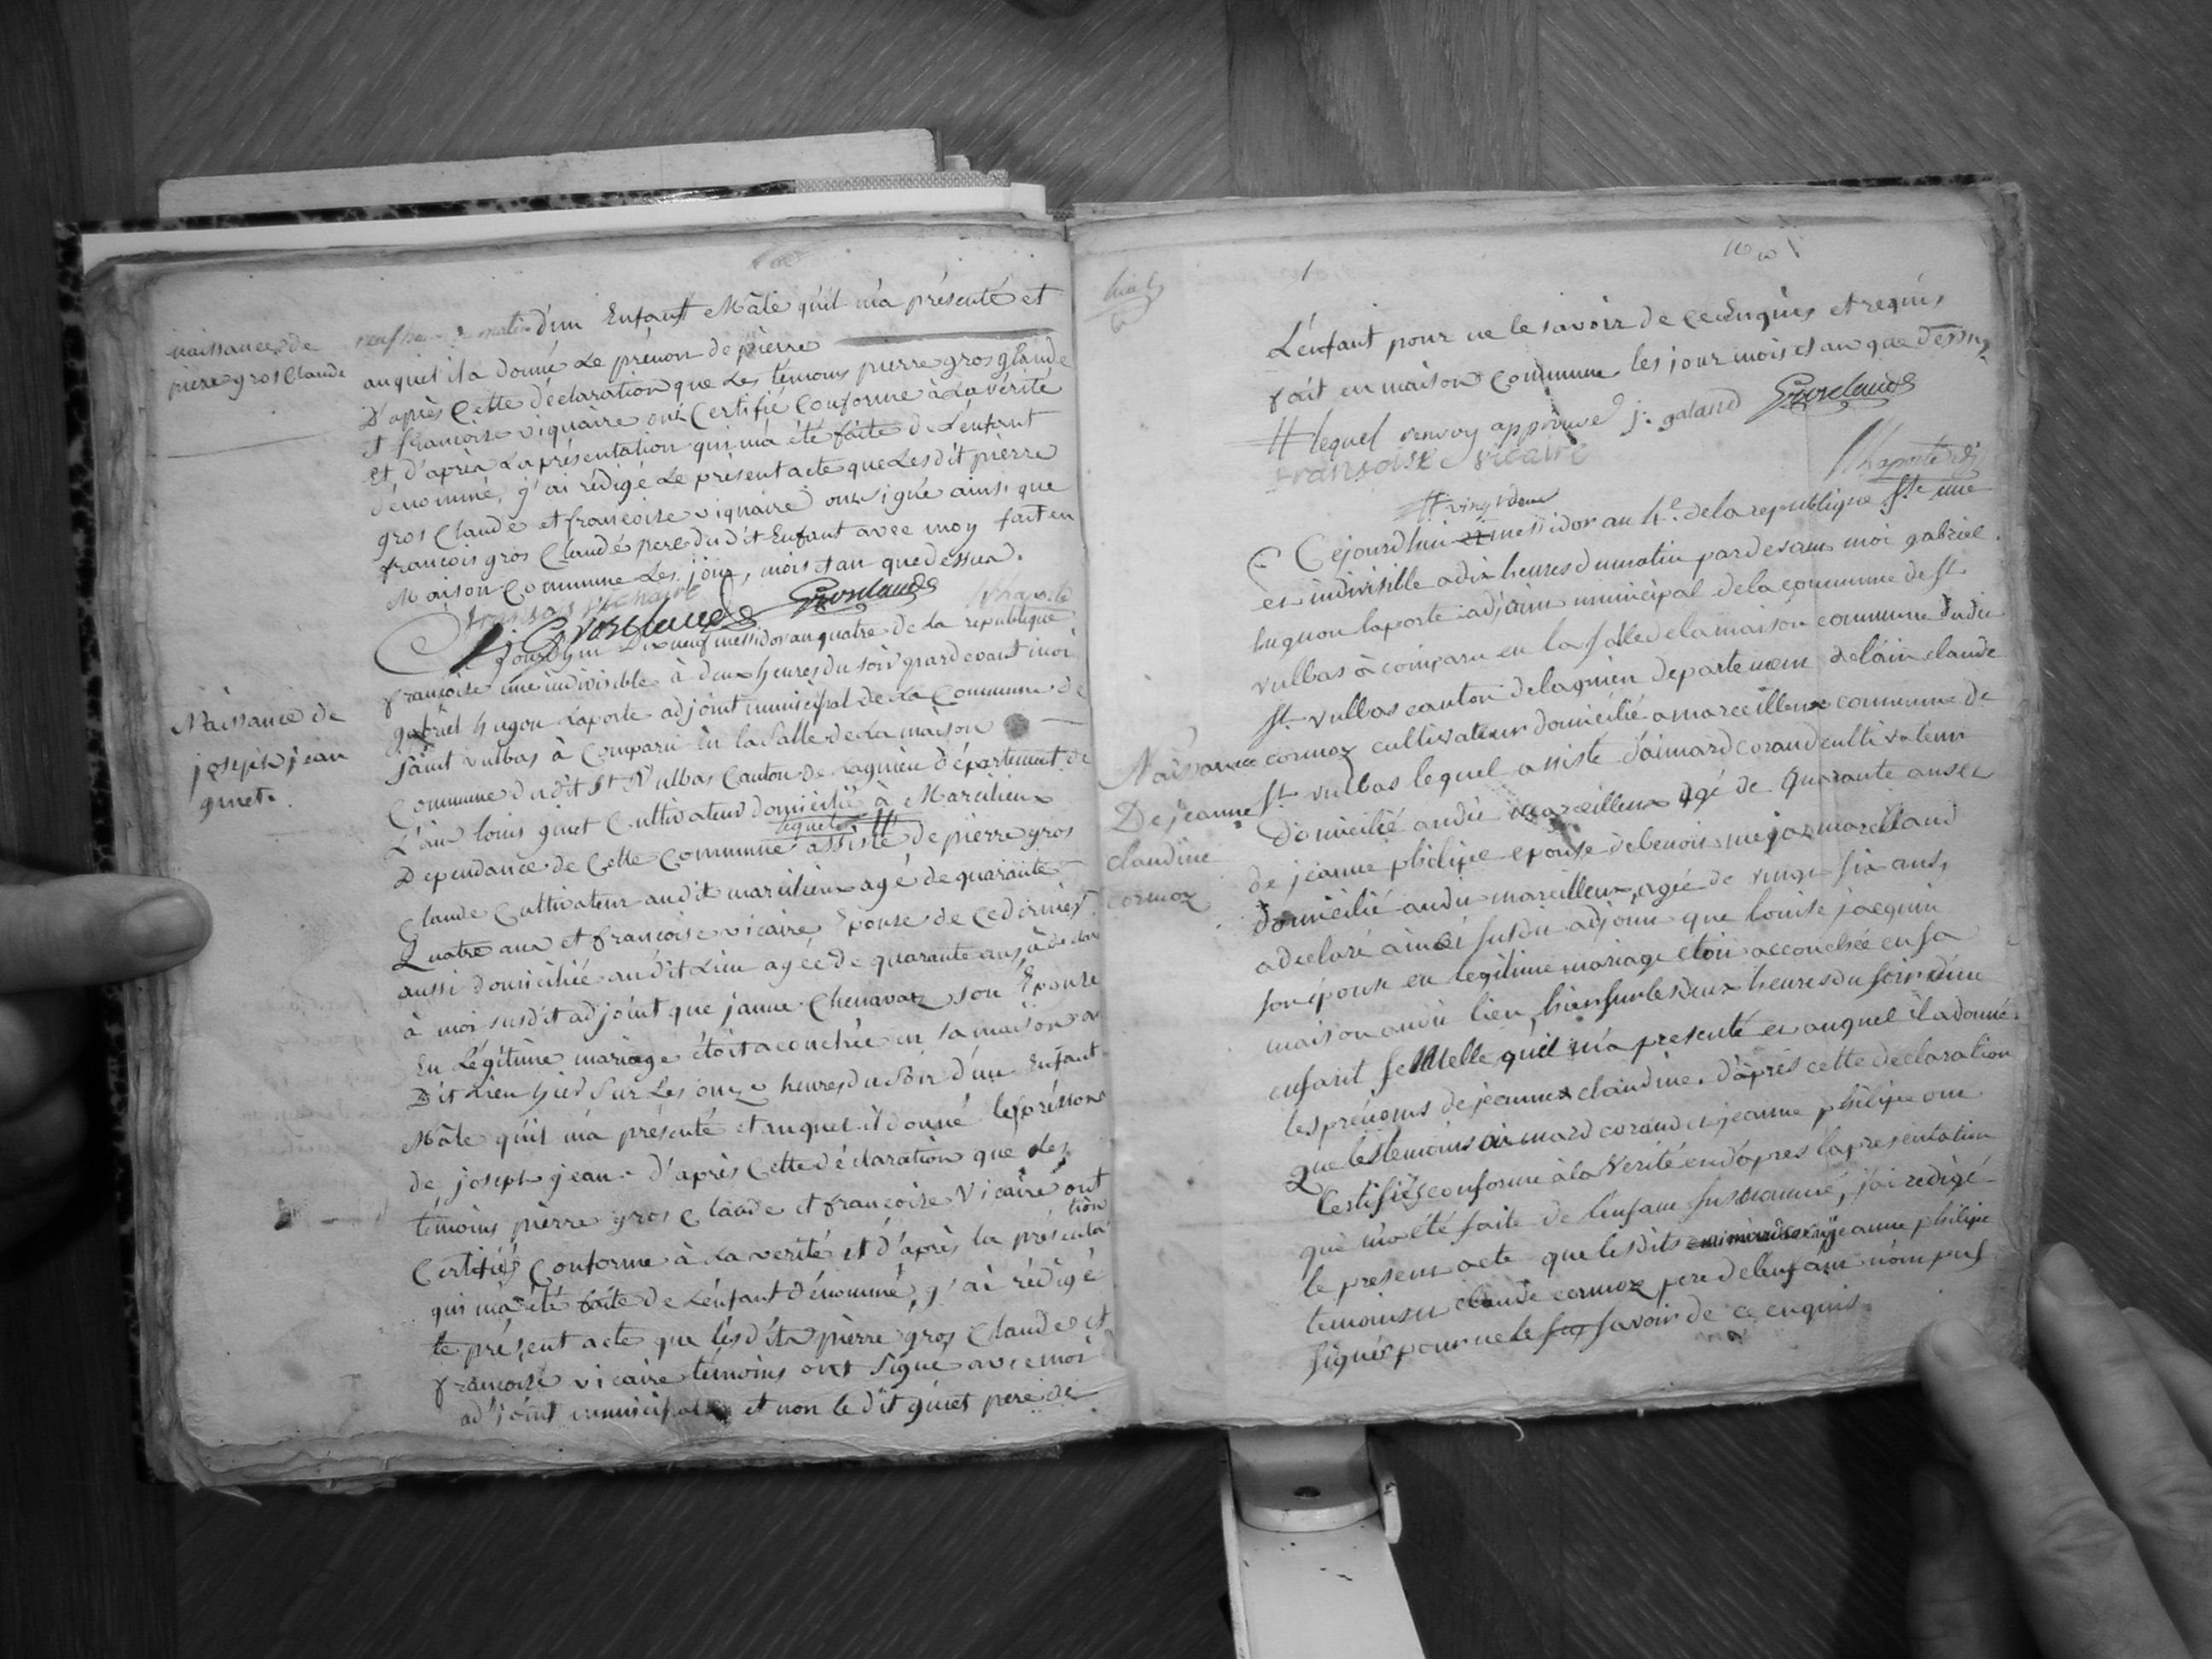 naissance de
pierre gros Claude
neuf heures du matin d'un Enfant Mâle qu'il m'a présenté et
auquel il a donné Le prénon de pierre
D'après Cette déclaration que Les témoins pierre gros glaude
et francoise viquaire ont Certifié Conforme à La vérité
Et d'après La présentation qui m'a été faite de L'enfant
dénommé, j'ai rédigé Le présent acte que Lesdit pierre
gros Claude et francoise viquaire ont signé ainsi que
francois gros Claude pere du dit Enfant avec moy fait en
Maison Commune Les jour, mois et an que dessus.
Grosclaude Grosclaude hLaporte
jourd'hui Dix neuf messidor an quatre de La republique
Naissance de
joseph jean
guiet.
francoise une indivisible à deux heures du soir pardevant moi
gabriel hugon Laporte adjoint municipal de La Commune de
saint vulbas à Comparu en la Salle de La maison
Commune du dit St Vulbas Canton de Lagnieu département de
L'ain louis guiet Cultivateur domicilié à Marcilieux
Dependance de Cette Commune lequel assisté de pierre gros
Claude Cultivateur audit marcilieux agé de quarante
Quatre ans et francoise vicaire Epouse de Ce dernier
aussi domiciliée audit Lieu agée de quarante ans, à déclaré
à moi susdit adjoint que janne Chenavaz son Epouse
En Légitime mariage étoit acouchée en sa maison au
Dit Lieu hier sur Les onze heures du soir d'un Enfant
Mâle qu'il m'a présenté et auquel il donné les prénons
de joseph jean. d'après Cette déclaration que Les
témoins pierre gros Claude et francoise Vicaire ont
Certifiés Conforme à La verité et d'après la présentation
qui m'a été faite de L'enfant dénommé, j'ai rédigé
le présent acte que lesdits pierre gros Claude et
francoise vicaire témoins ont signé avec moi
adjoint municipal et non le dit guiet pere de
L'enfant pour ne le savoir de ce Enquis et requis,
fait en maison Commune les jour mois et an que Dessus,
lequel renvoy approuvé j. galand Grosclaude
fransoise vicaire
hLaporte adj
vingt deux
Cejourdhui 22 messidor an 4e. de la republique fse une
et indivisible a dix heures du matin pardevant moi gabriel
huguon laporte adjoint municipal de la commune de St
vulbas à comparu en la salle de la maison commune dudit
St. vulbas canton de lagnieu departement de lain claude
Naissance
De jeanne
claudine
cormoz
cormoz cultivateur domicilié a marceilleux commune de
St. vulbas lequel assisté d'aimard corand cultivateur
domicilié audit marceilleux agé de quarante ans et
de jeanne philipe epouse de benoit marchand
domicilié audit marceilleux, agée de vingt six ans,
a declaré à moi susdit adjoint que louise jacquin
son épouse en legitime mariage etoit accouchée en sa
maison audit lieu, hier sur les deux heures du soir d'une
enfant femelle quil m'a presenté et auquel il a donné
les prénoms de jeanne claudine. d'après cette declaration
que les temoins aimard corand et jeanne philipe ont
Certifiés conforme à la Verité et d'après la presentation
qui m'a été faite de l'enfant susnommé, j'ai redigé
le present acte que lesdits jeanne philipe
temoins et claude cormoz pere de l'enfant n'ont pus
signér pour ne le savoir de ce enquis